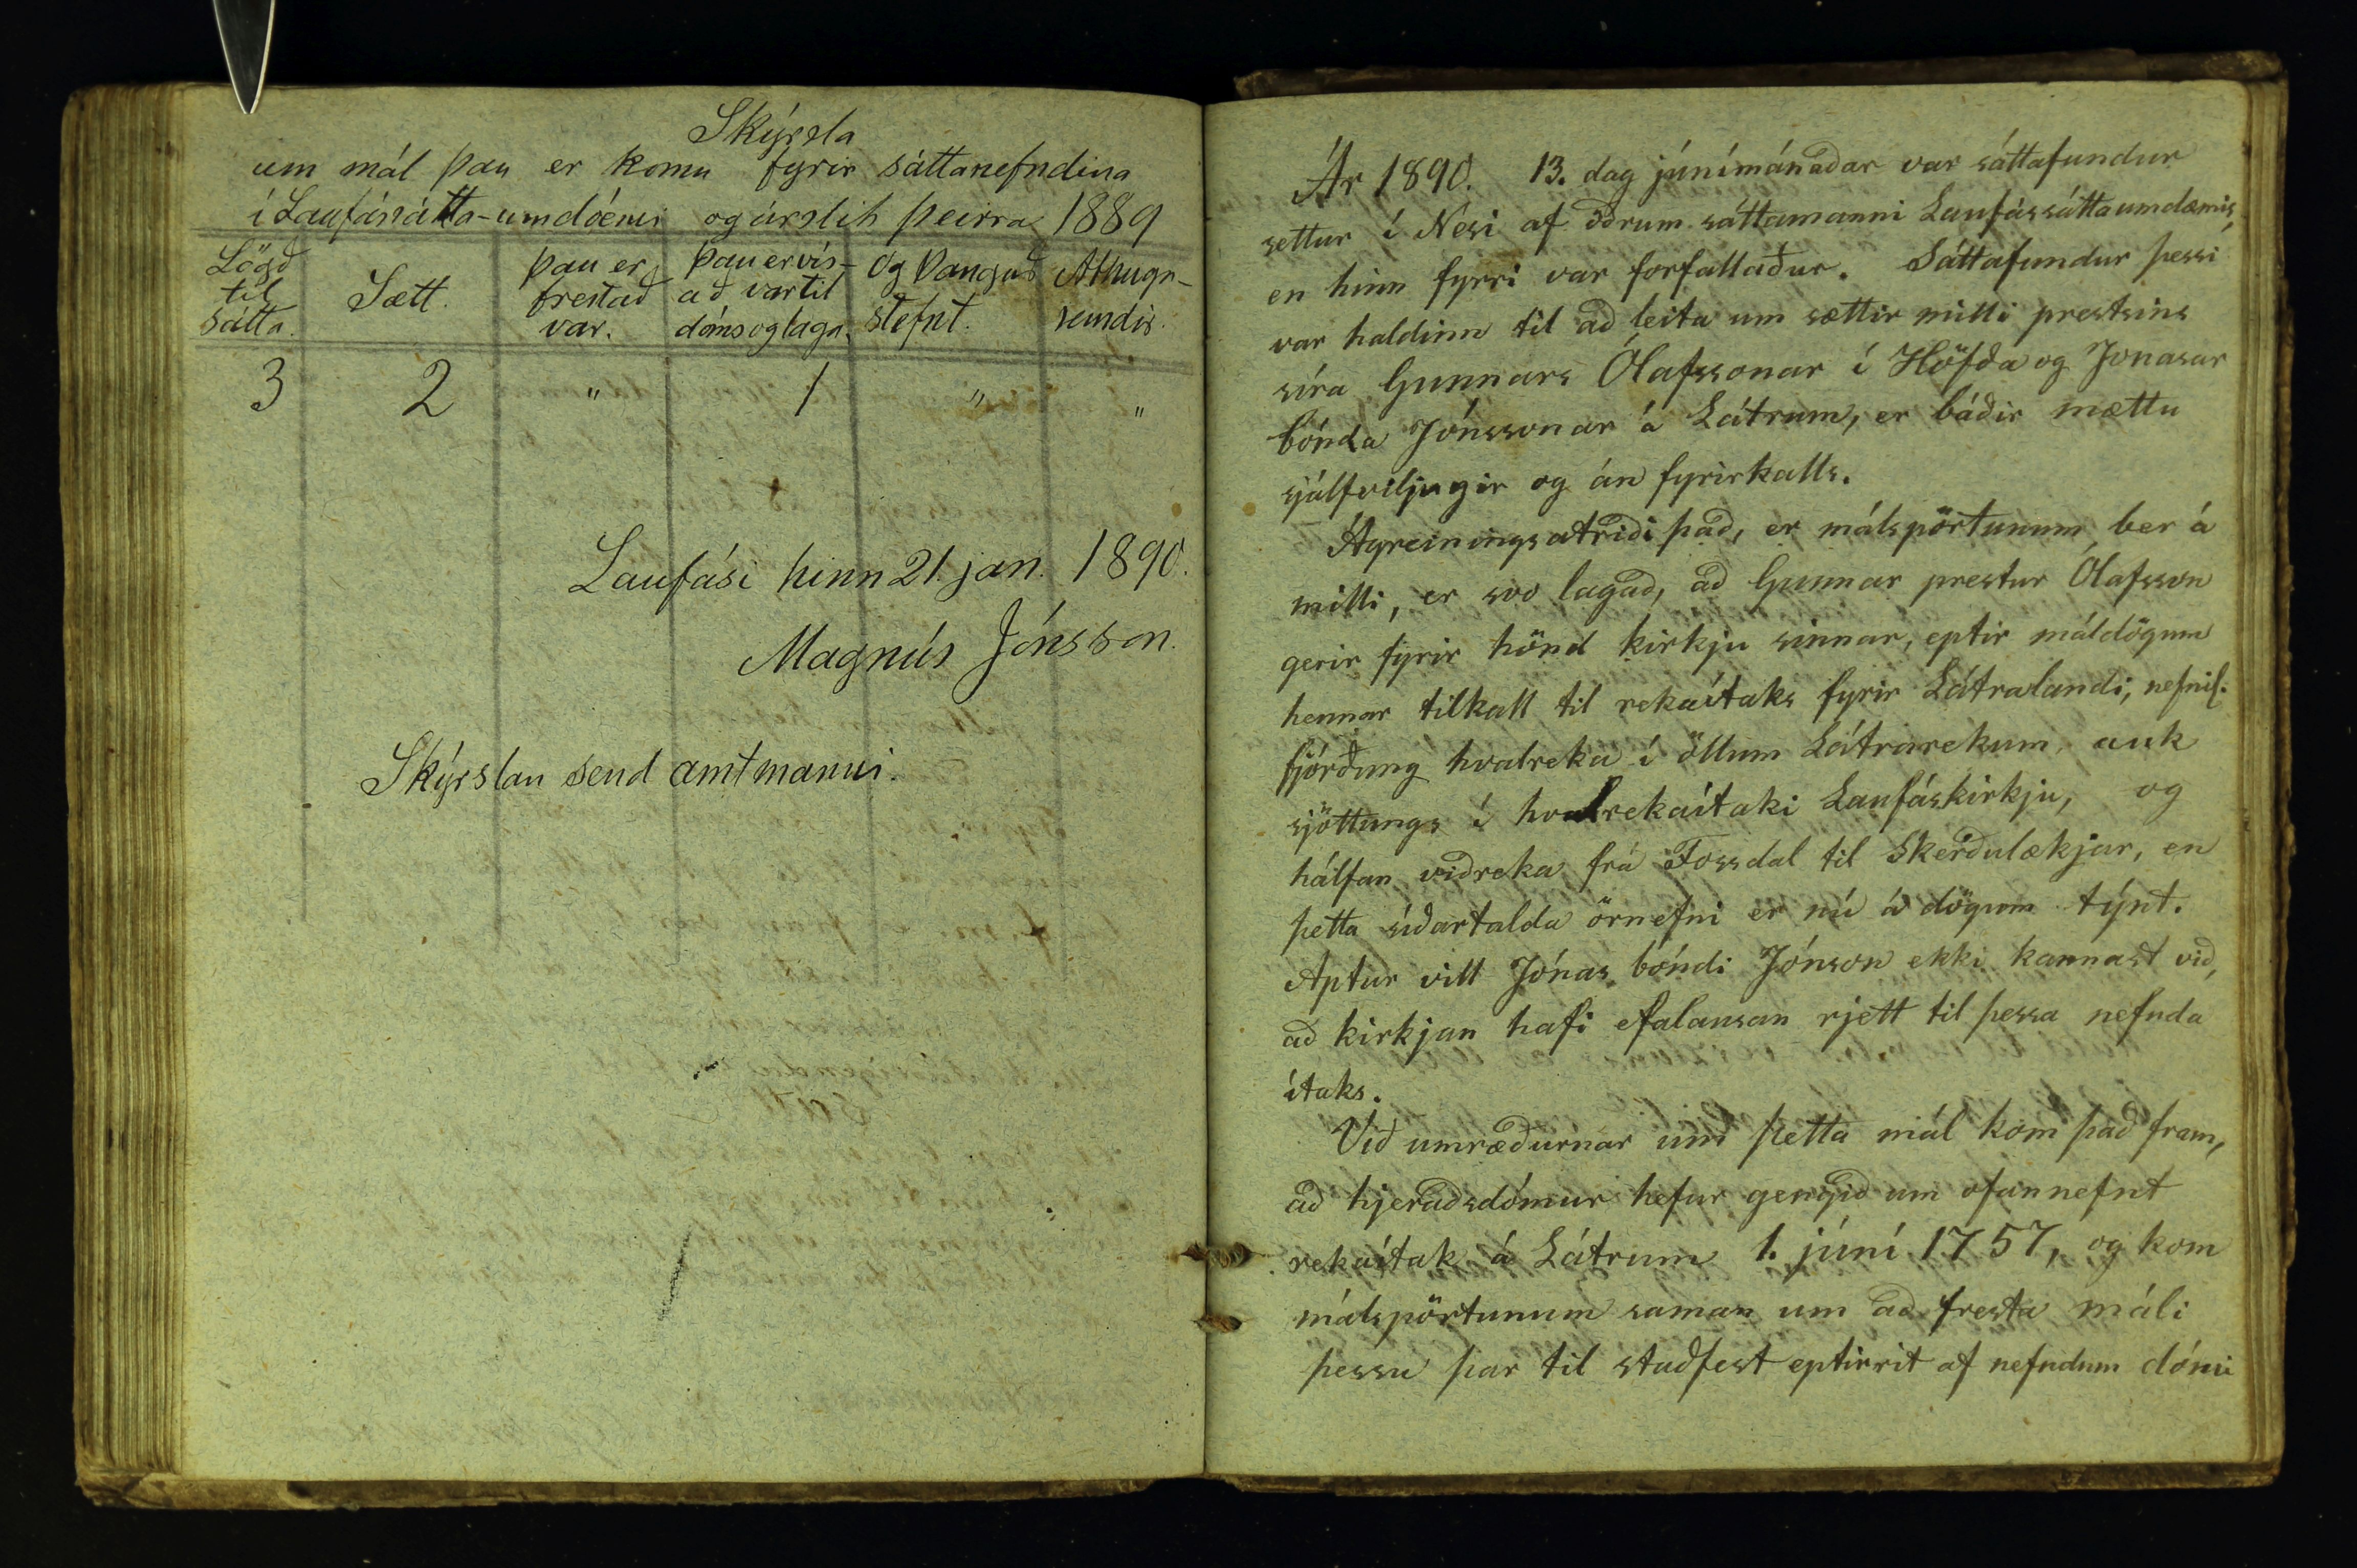 Skýrsla
um mál þau er komu fyrir sáttanefndina
í Laufássátta-umdæmi og úrslit þeirra 1889
Lögð til sátta.
Sætt.
þau er frestað var.
þau er vís-
að var til
dóms og laga.
Og þangað stefnt.
Athuga-
semdir.
3 2 " 1 " "
Laufási hinn 21. jan. 1890.
Magnús Jónsson.
Skýrslan send amtmanni.
Ár 1890. 13. dag júnímánaðar var sáttafundur
settur í Nesi af öðrum sáttamanni Laufássáttaumdæmis,
en hinn fyrri var forfallaður. Sáttafundur þessi
var haldinn til að leita um sættir milli prestsins
síra Gunnars Ólafssonar í Höfða og Jonasar
bónda Jónssonar á Látrum, er báðir mættu
sjálfviljugir og án fyrirkalls.
Ágreiningsatriði það, er málspörtunum ber á
milli, er svo lagað, að Gunnar prestur Ólafsson
gerir fyrir hönd kirkju sinnar, eptir máldögum
hennar tilkall til rekaítaks fyrir Látralandi, nefnil.
fjórðung hvalreka í öllum Látrarekum, auk
sjöttungs í hvalrekaítaki Laufáskirkju, og
hálfan viðreka frá Fossdal til Skerðulækjar, en
þetta síðartalda örnefni er nú á dögum týnt.
Aptur vill Jónas bóndi Jónson ekki kannast við,
að kirkjan hafi efalausan rjett til þessa nefnda
ítaks.
Við umræðurnar um þetta mál kom það fram,
að hjeraðsdómur hefur gengið um ofannefnt
rekaítak á Látrum 1. júní 1757, og kom
málspörtunum saman um að fresta máli
þessu þar til staðfest eptirrit af nefndum dómi